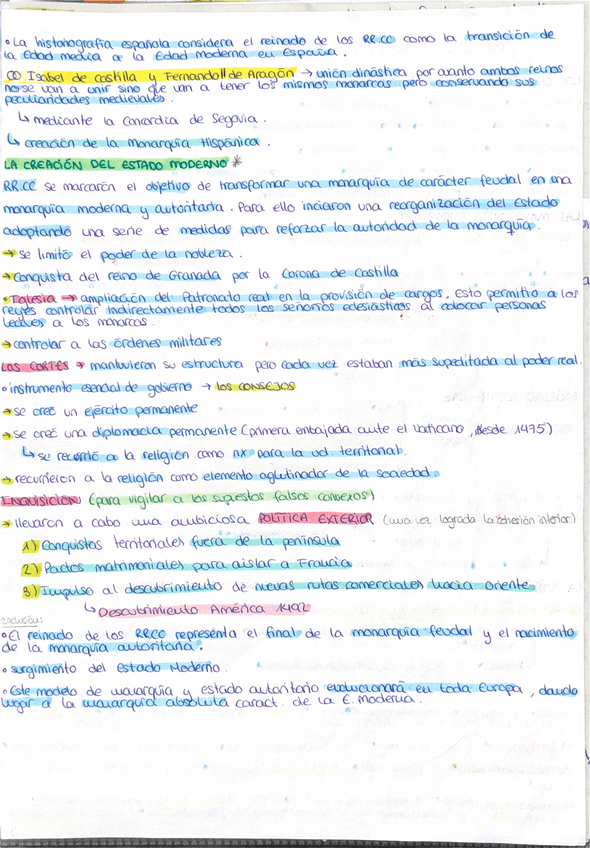 • La historiografía española considera el reinado de los RR.CC como la transición de
la Edad media a la Edad moderna en España.
Isabel de Castilla y Fernando II de Aragón → unión dinástica por cuanto ambos reinos
no se van a unir sino que van a tener los mismos monarcas pero conservando sus
peculiaridades medievales.
↳ mediante la Concordia de Segovia.
↳ creación de la monarquía Hispánica.
LA CREACIÓN DEL ESTADO MODERNO *
RR.CC se marcaron el objetivo de transformar una monarquía de carácter feudal en una
monarquía moderna y autoritaria. Para ello iniciaron una reorganización del Estado
adoptando una serie de medidas para reforzar la autoridad de la monarquía.
→ se limitó el poder de la nobleza.
→ Conquista del reino de Granada por la Corona de Castilla
• Iglesia → ampliación del Patronato real en la provisión de cargos. Esto permitió a los
reyes controlar indirectamente todos los señoríos eclesiásticos al colocar personas
leales a los monarcas.
→ controlar a las órdenes militares
LAS CORTES → mantuvieron su estructura pero cada vez estaban más supeditada al poder real.
• instrumento esencial de gobierno → los CONSEJOS
→ se creó un ejército permanente
→ se creó una diplomacia permanente (primera embajada ante el Vaticano, desde 1475)
↳ se recurrió a la religión como nx para la ud. territorial.
→ recurrieron a la religión como elemento aglutinador de la sociedad.
INQUISICIÓN (para vigilar a los supuestos falsos conversos)
→ llevaron a cabo una ambiciosa POLÍTICA EXTERIOR (una vez lograda la cohesión interior)
1) Conquistas territoriales fuera de la península
2) Pactos matrimoniales para aislar a Francia.
3) Impulso al descubrimiento de nuevas rutas comerciales hacia Oriente.
↳ Descubrimiento América 1492
conclusión:
• El reinado de los RRCC representa el final de la monarquía feudal y el nacimiento
de la monarquía autoritaria.
• surgimiento del Estado Moderno.
• Este modelo de monarquía y estado autoritario evolucionará en toda Europa, dando
lugar a la monarquía absoluta caract. de la E. Moderna.